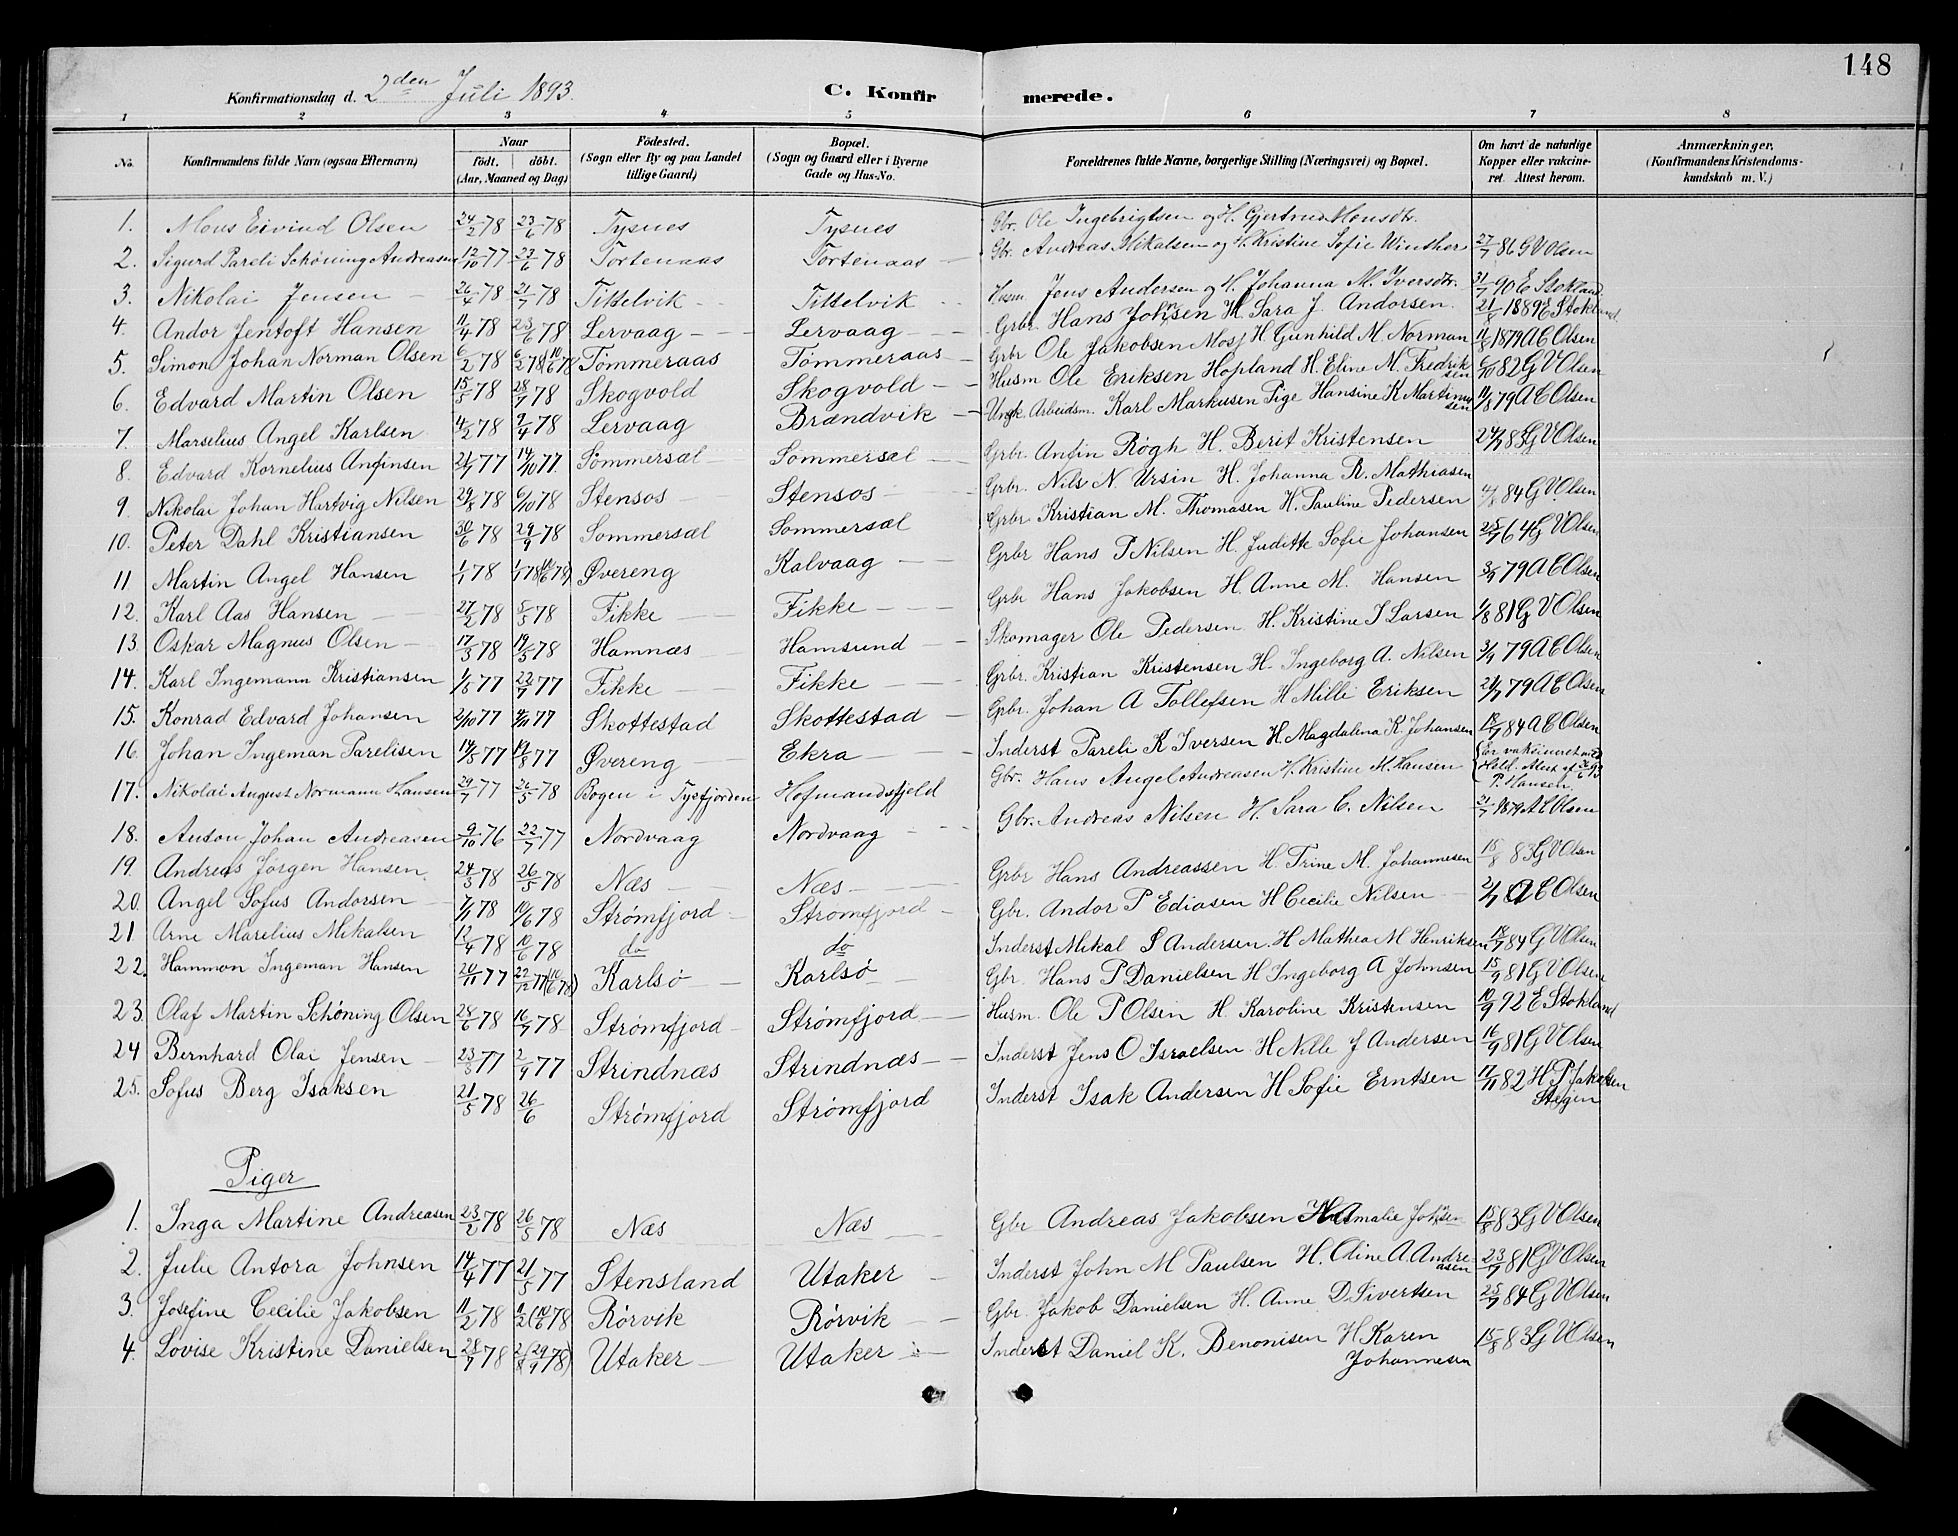 148
Konfirmationsdag d. 2den Juli 1893. C. Konfirmerede.
1 2 3 4 5 6 7 8
No. Konfirmandens fulde Navn (ogsaa Efternavn) Naar födt. döbt. (Aar, Maaned og Dag) Födested. (Sogn eller By og paa Landet tillige Gaard) Bopæl. (Sogn og Gaard eller i Byerne Gade og Hus-No. Forældrenes fulde Navne, borgerlige Stilling (Næringsvei) og Bopæl. Om havt de naturlige Kopper eller vakcineret. Attest herom. Anmærkninger. (Konfirmandens Kristendomskundskab m. V.)
1. Mons Eivind Olsen 24/2 78 23/6 78 Tysnes Tysnes Gbr. Ole Ingebrigtsen og H. Gjertrud Monsdtr.
2. Sigurd Pareli Schøning Andreasen 12/10 77 23/6 78 Tortenaas Tortenaas Gbr. Andreas Nikalsen og H. Kristine Sofie Winther 27/7 86 G V Olsen
3. Nikolai Jensen 26/4 78 21/7 78 Tittelvik Tittelvik Husm. Jens Andersen og H. Johanna M. Iversdtr. 31/7 90 E Stokland
4. Andor Jentoft Hansen 11/4 78 23/6 78 Lervaag Lervaag Grbr. Hans Johnsen H. Sara J. Andorsen. 21/8 1889 E Stokland
5. Simon Johan Norman Olsen 6/2 78 6/2 78 (10/6 78 Tömmeraas Tömmeraas Grbr Ole Jakobsen Mosj H Gunhild M. Norman 11/8 1879 A E Olsen
6. Edvard Martin Olsen 15/5 78 28/7 78 Skogvold Skogvold Husm Ole Eriksen Hopland H. Eline M. Fredriksen 6/10 82 G V Olsen
7. Marselius Angel Karlsen 4/2 78 2/4 78 Lervaag Brændvik Ungk. Arbeidsm. Karl Markusen Pige Hansine K Martinusen 11/8 79 A E Olsen
8. Edvard Kornelius Anfinsen 21/7 77 14/10 77. Sömmersæl Sommersæl Grbr. Anfin Røgh H. Berit Kristensen 24/7 83 G V Olsen
9. Nikolai Johan Hartvig Nilsen 29/8 78 6/10 78 Stensos Stensos Grbr. Nils N. Ursin H. Johanna B. Mathiasen
10. Peter Dahl Kristiansen 30/6 78 29/9 78 Sommersæl Sommersæl Grbr Kristian M. Thomasen H. Pauline Pedersen 4/8 84 G V Olsen
11 Martin Angel Hansen 1/1 78 1/1 78 (10/6 78) Øvereng Kalvaag Grbr Hans P Nilsen H. Judith Sofie Johansen 25/7 64 G V Olsen
12. Karl Aas Hansen 27/2 78 5/5 78 Fikke Fikke Grbr Hans Jakobsen H. Anne M. Hansen 3/9 79 A E Olsen
13. Oskar Magnus Olsen 17/3 78 19/5 78 Hamnæs Hamsund Skomager Ole Pedersen. H. Kristine J Larsen 1/8 81 G V Olsen
14. Karl Ingemann Kristiansen 1/5 77 22/7 77 Fikke Fikke Grbr. Kristian Kristensen H. Ingeborg A. Nilsen 3/9 79 A E Olsen
15. Konrad Edvard Johansen 2/10 77 4/11 77 Skottestad Skottestad Gpbr. Johan A Tollefsen H Milli Eriksen 24/7 79 A E Olsen
16. Johan Ingeman Parelisen 14/5 77 19/8 77 Øvereng Ekra Inderst Pareli K Iversen H Magdalena K. Johansen 18/7 84 A E Olsen
17. Nikolai August Normann Hansen 29/7 77 26/5 78 Bogen i Tysfjorden Hofmandsfjeld Gbr. Hans Angel Andreasen H. Kristine M. Hansen Er vakcineret med Held. Attest af P. Hansen
18. Anton Johan Andreasen 9/10 76 22/7 77 Nordvaag Nordvaag Gbr. Andreas Nilsen H. Sara C. Nilsen 21/7 1879 A E Olsen
19. Andreas Jørgen Hansen 24/3 78 26/5 78 Næs Næs Grbr Hans Andreassen H. Trine M. Johannesen 15/8 83 G V Olsen
20. Angel Sofus Andorsen 7/1 78 10/6 78 Strømfjord Strømfjord Gbr. Andor P Ediasen H Cecilie Nilsen A E Olsen
21 Arne Marelius Mikalsen 12/4 78 10/6 78 do do Inderst Mikal S Andersen. H Mathea M Henriksen 18/7 84 G V Olsen
22. Hammon Ingeman Hansen 20/11 77 22/12 77 (10/6 78) Karlsö Karlsö Gbr. Hans P Danielsen H Ingeborg A Johnsen 15/9 81 G V Olsen
23. Olaf Martin Schöning Olsen 28/6 78 16/7 78 Strømfjord Strømfjord Husm. Ole P Olsen H. Karoline Kristensen 10/9 92 E Stokland
24 Bernhard Olai Jensen 23/3 77 2/9 77 Strindnæs Strindnæs Inderst Jens O Israelsen H Nille J Andersen 16/9 81 G V Olsen
25. Sofus Berg Isaksen 21/5 78 26/6 Strømfjord Strømfjord Inderst Isak Andersen H Sofie Erntsen 17/11 82 H P Jakobsen Stegen
Piger
1. Inga Martine Andreasen 23/2 78 26/5 78 Næs Næs Gbr Andreas Jakobsen H Amalie Johnsen 15/8 83 G V Olsen
2. Julie Antora Johnsen 14/4 77 21/5 77 Stensland Utaker Inderst John M Paulsen H. Oline A Andreasen 23/9 81 G V Olsen
3. Josefine Cecilie Jakobsen 11/2 78 11/2 (10/6 78 Rörvik Rörvik Gbr. Jakob Danielsen H. Anne D Sivertsen 25/7 84 G V Olsen
4. Lovise Kristine Danielsen 28/7 78 2/8 (29/9 78) Utaker Utaker Inderst Daniel K. Benonisen H Karen Johannesen 15/8 83 G V Olsen